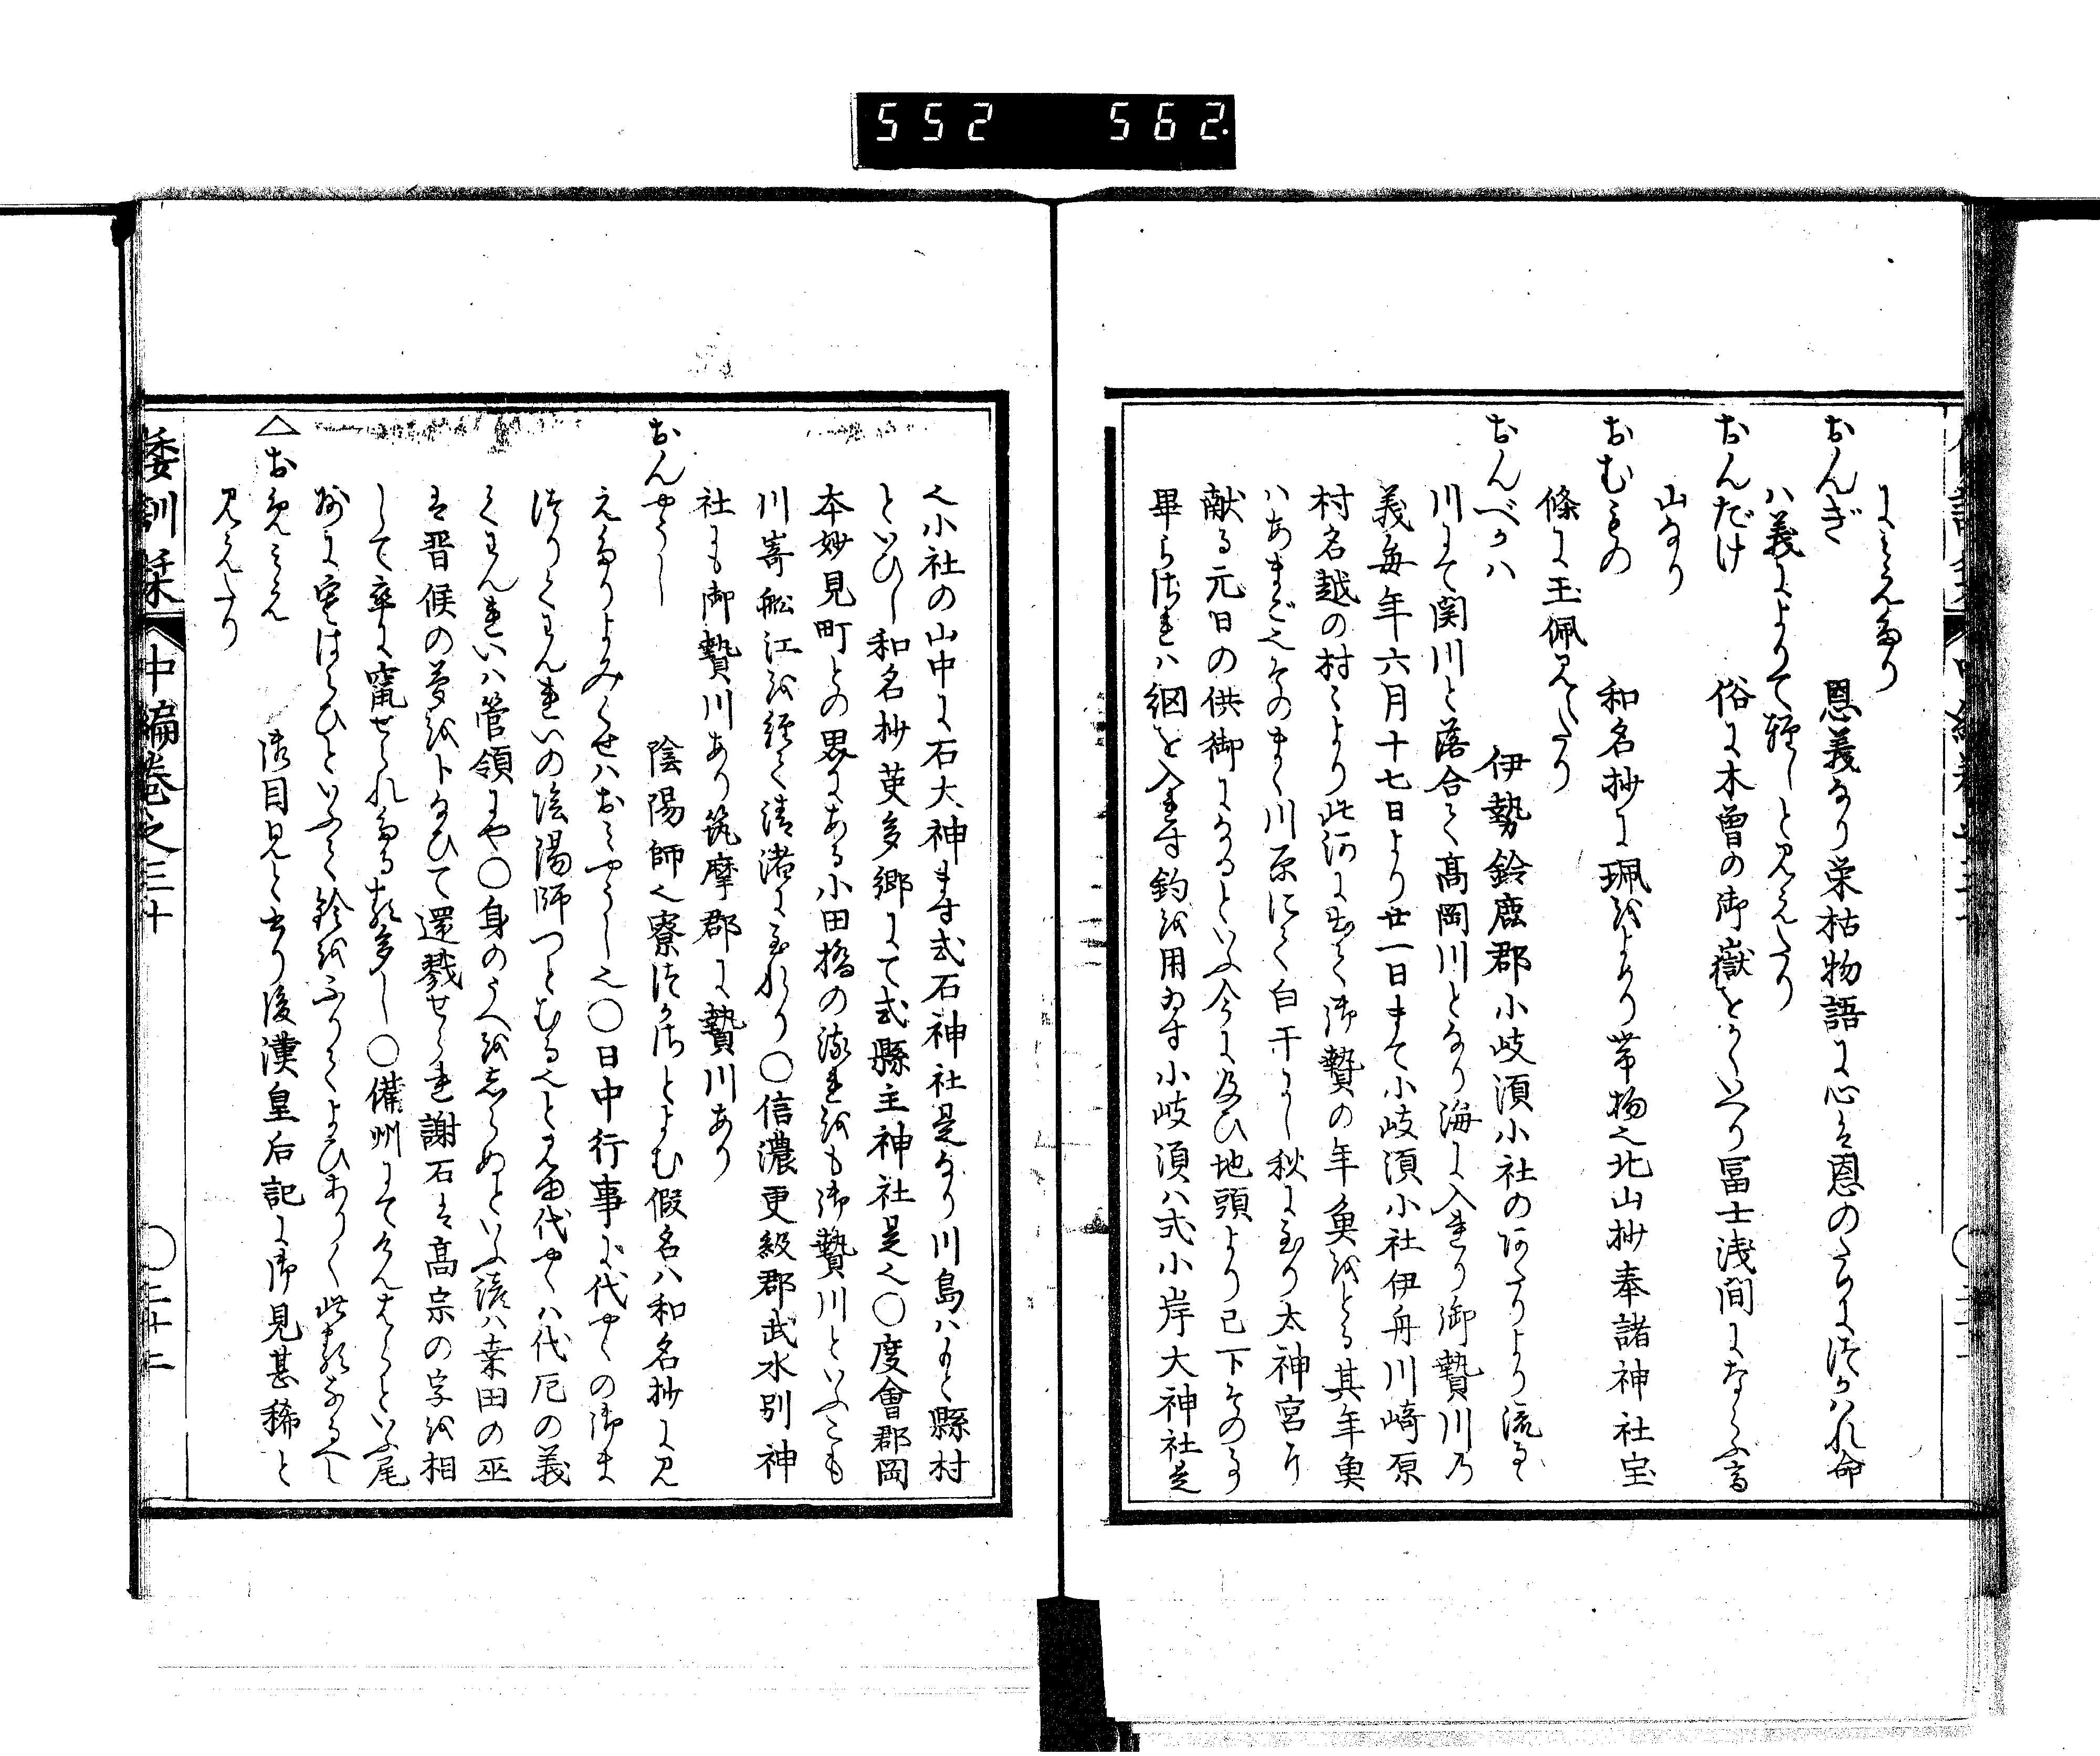 552 562
にみえたり
おんぎ 恩義なり栄枯物語に心は恩のために使はれ命
ハ義によりて軽しと見えたり
おんだけ 俗に木曽の御嶽をかくいへり冨士浅間にならふ高
山なり
おむもの 和名抄に珮をよめり帯物也北山抄奉諸神社宝
條に玉佩見えたり
おんべがハ 伊勢鈴鹿郡小岐須小社のあたりより流るゝ
川にて関川と落合て髙岡川となり海に入れり御贄川乃
義毎年六月十七日より廿一日まて小岐須小社伊舟川崎原
村名越の村々より此河に出て御贄の年魚をとる其年魚
ハあまご也そのまゝ川原にて白干にし秋に至り太神宮に
献る元日の供御になるといふ今に及ひ地頭より已下その事
畢らざれハ網を入れす釣を用ゐす小岐須ハ式小岸大神社是
也小社の山中に石大神ます式石神社是なり川島ハもと縣村
といひし和名抄英多郷にて式縣主神社是也〇度會郡岡
本妙見町との界にある小田橋の流れをも御贄川といふこも
川嵜舩江を経て清渚に至れり〇信濃更級郡武水別神
社にも御贄川あり筑摩郡に贄川あり
おんやうし 陰陽師也寮つかさとよむ假名ハ和名抄に見
えたりよみくせハおみやうし也〇日中行事に代やくの御ま
つりくわんれいの陰陽師つとむる也と見ゆ代やくハ代厄の義
くわんれいハ管領にや〇身のうへをしらぬといふ諺ハ桑田の巫
は晋侯の夢を卜なひて還戮せられ謝石は髙宗の字を相
して卒に竄せられたる類多し〇備州にてかんはらといふ尾
州に宅はらひといふて鈴をふりてよひありく此類なるへし
△おめみえ 御目見と書り後漢皇后記に御見甚稀と
見えたり
倭訓栞 中編巻之三十 〇二十二